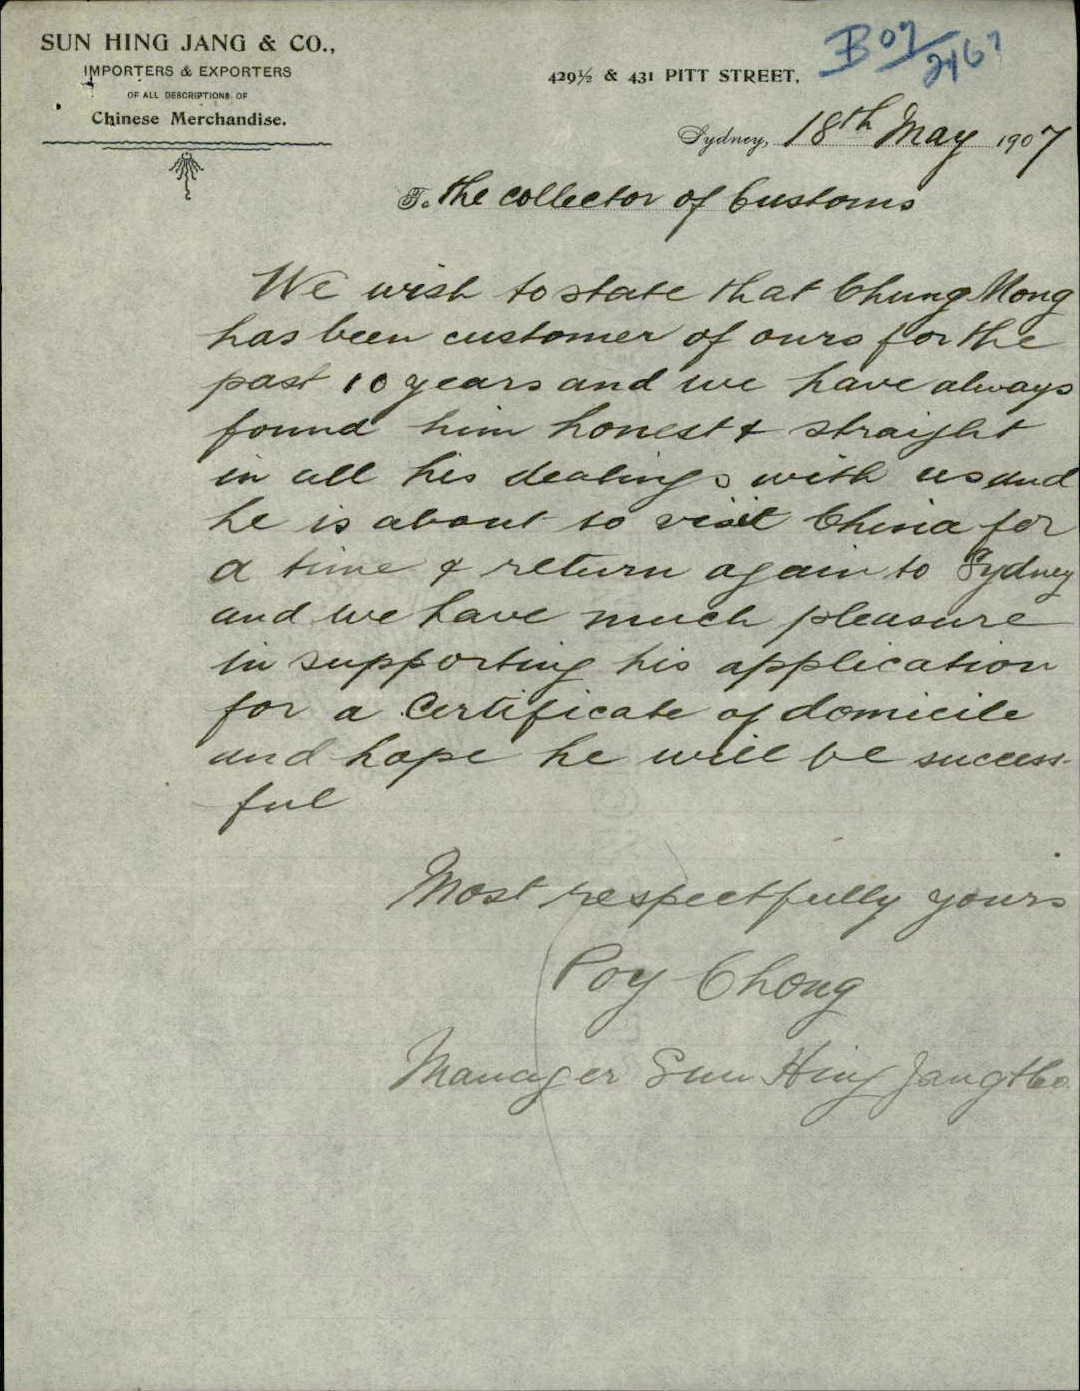 SUN HING JANG & CO.,
IMPORTERS & EXPORTERS
OF ALL DESCRIPTIONS OF
Chinese Merchandise.
B07/2467
429½ & 431 PITT STREET.
Sydney, 18th May 1907
To the collector of Customs
We wish to state that Chung Mong
has been customer of ours for the
past 10 years and we have always
found him honest & straight
in all his dealings with us and
he is about to visit China for
a time & return again to Sydney
and we have much pleasure
in supporting his application
for a Certificate of domicile
and hope he will be success-
ful
Most respectfully yours
Poy Chong
Manager Sun Hing Jang & Co.